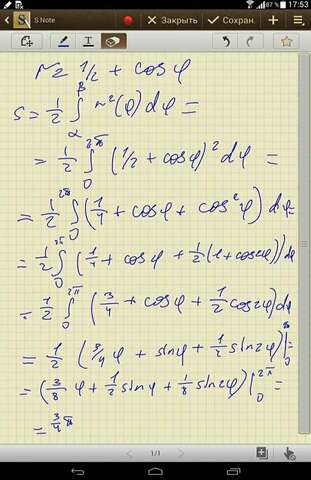 87% 17:53
S Note
Закрыть
Сохран.
r = 1/2 + cosφ
S = 1/2 ∫_α^β r²(φ)dφ =
= 1/2 ∫_0^{2π} (1/2 + cosφ)² dφ =
= 1/2 ∫_0^{2π} (1/4 + cosφ + cos²φ) dφ =
= 1/2 ∫_0^{2π} (1/4 + cosφ + 1/2(1+cos2φ))dφ
= 1/2 ∫_0^{2π} (3/4 + cosφ + 1/2 cos2φ)dφ
= 1/2 (3/4φ + sinφ + 1/2 sin2φ)|_0^{2π} =
= (3/8 φ + 1/2 sinφ + 1/8 sin2φ)|_0^{2π} =
= 3/4π
1/1